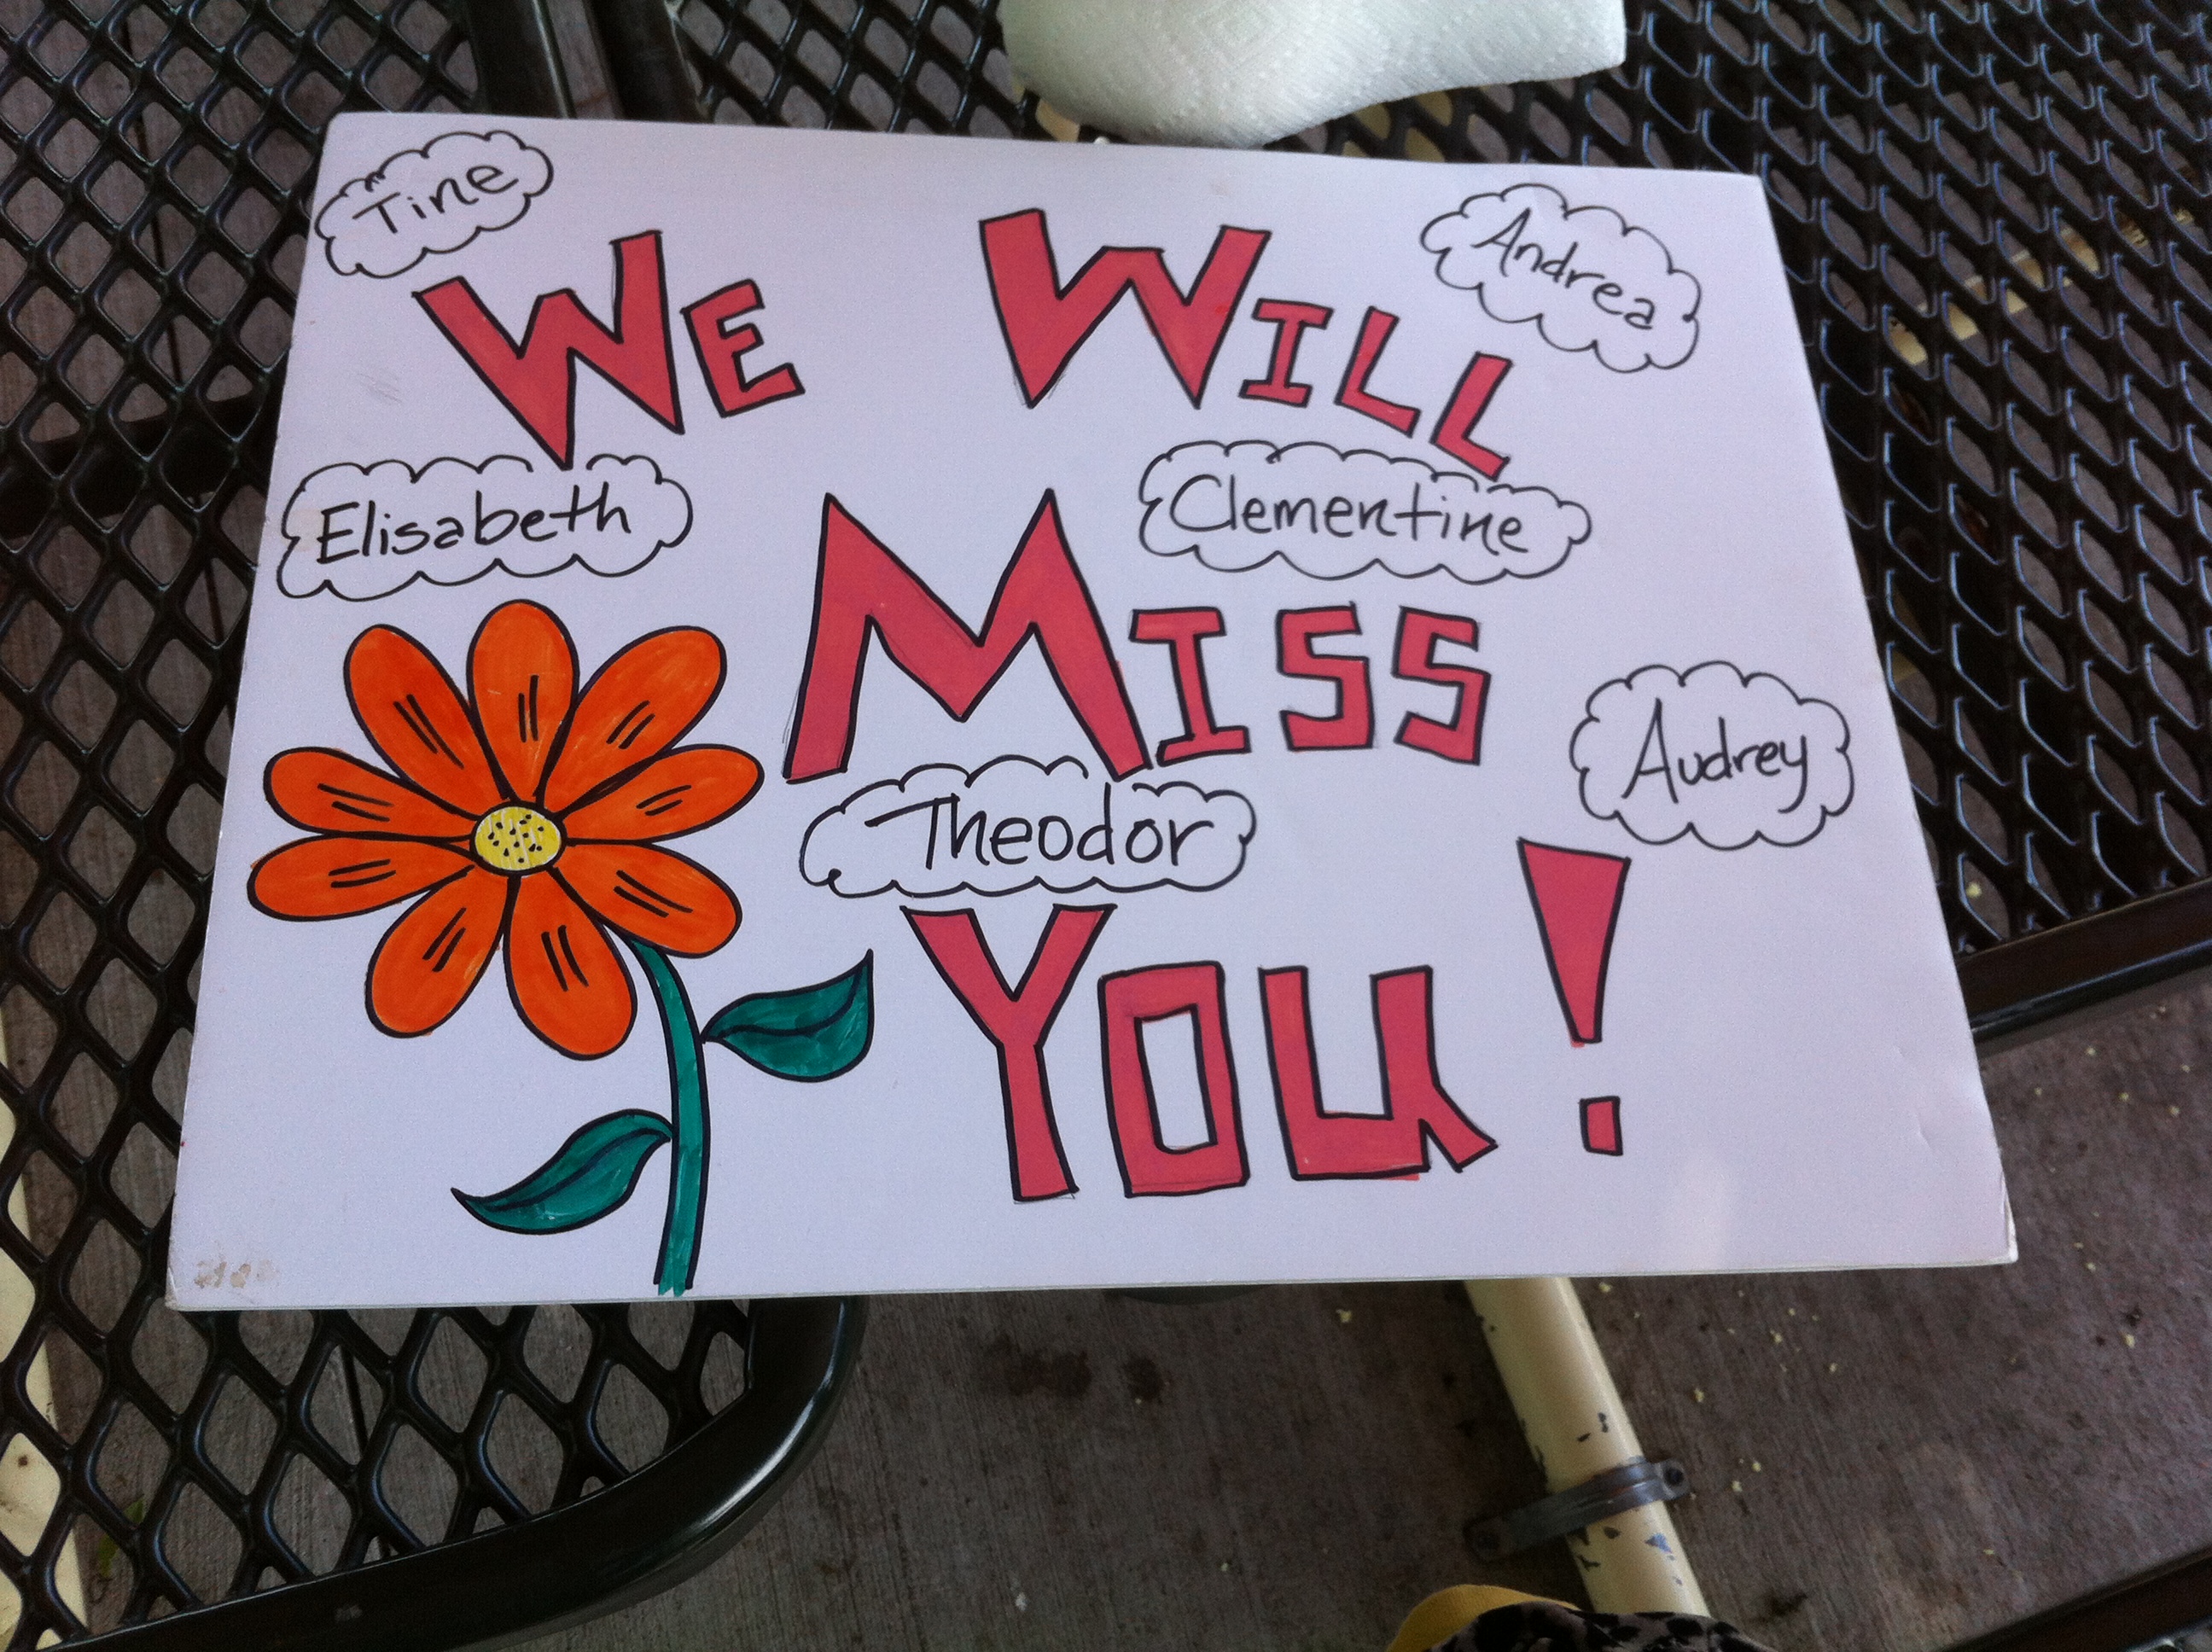 Tine
Andrea
WE WILL
Elisabeth
Clementine
MISS
Audrey
Theodor
YOU!